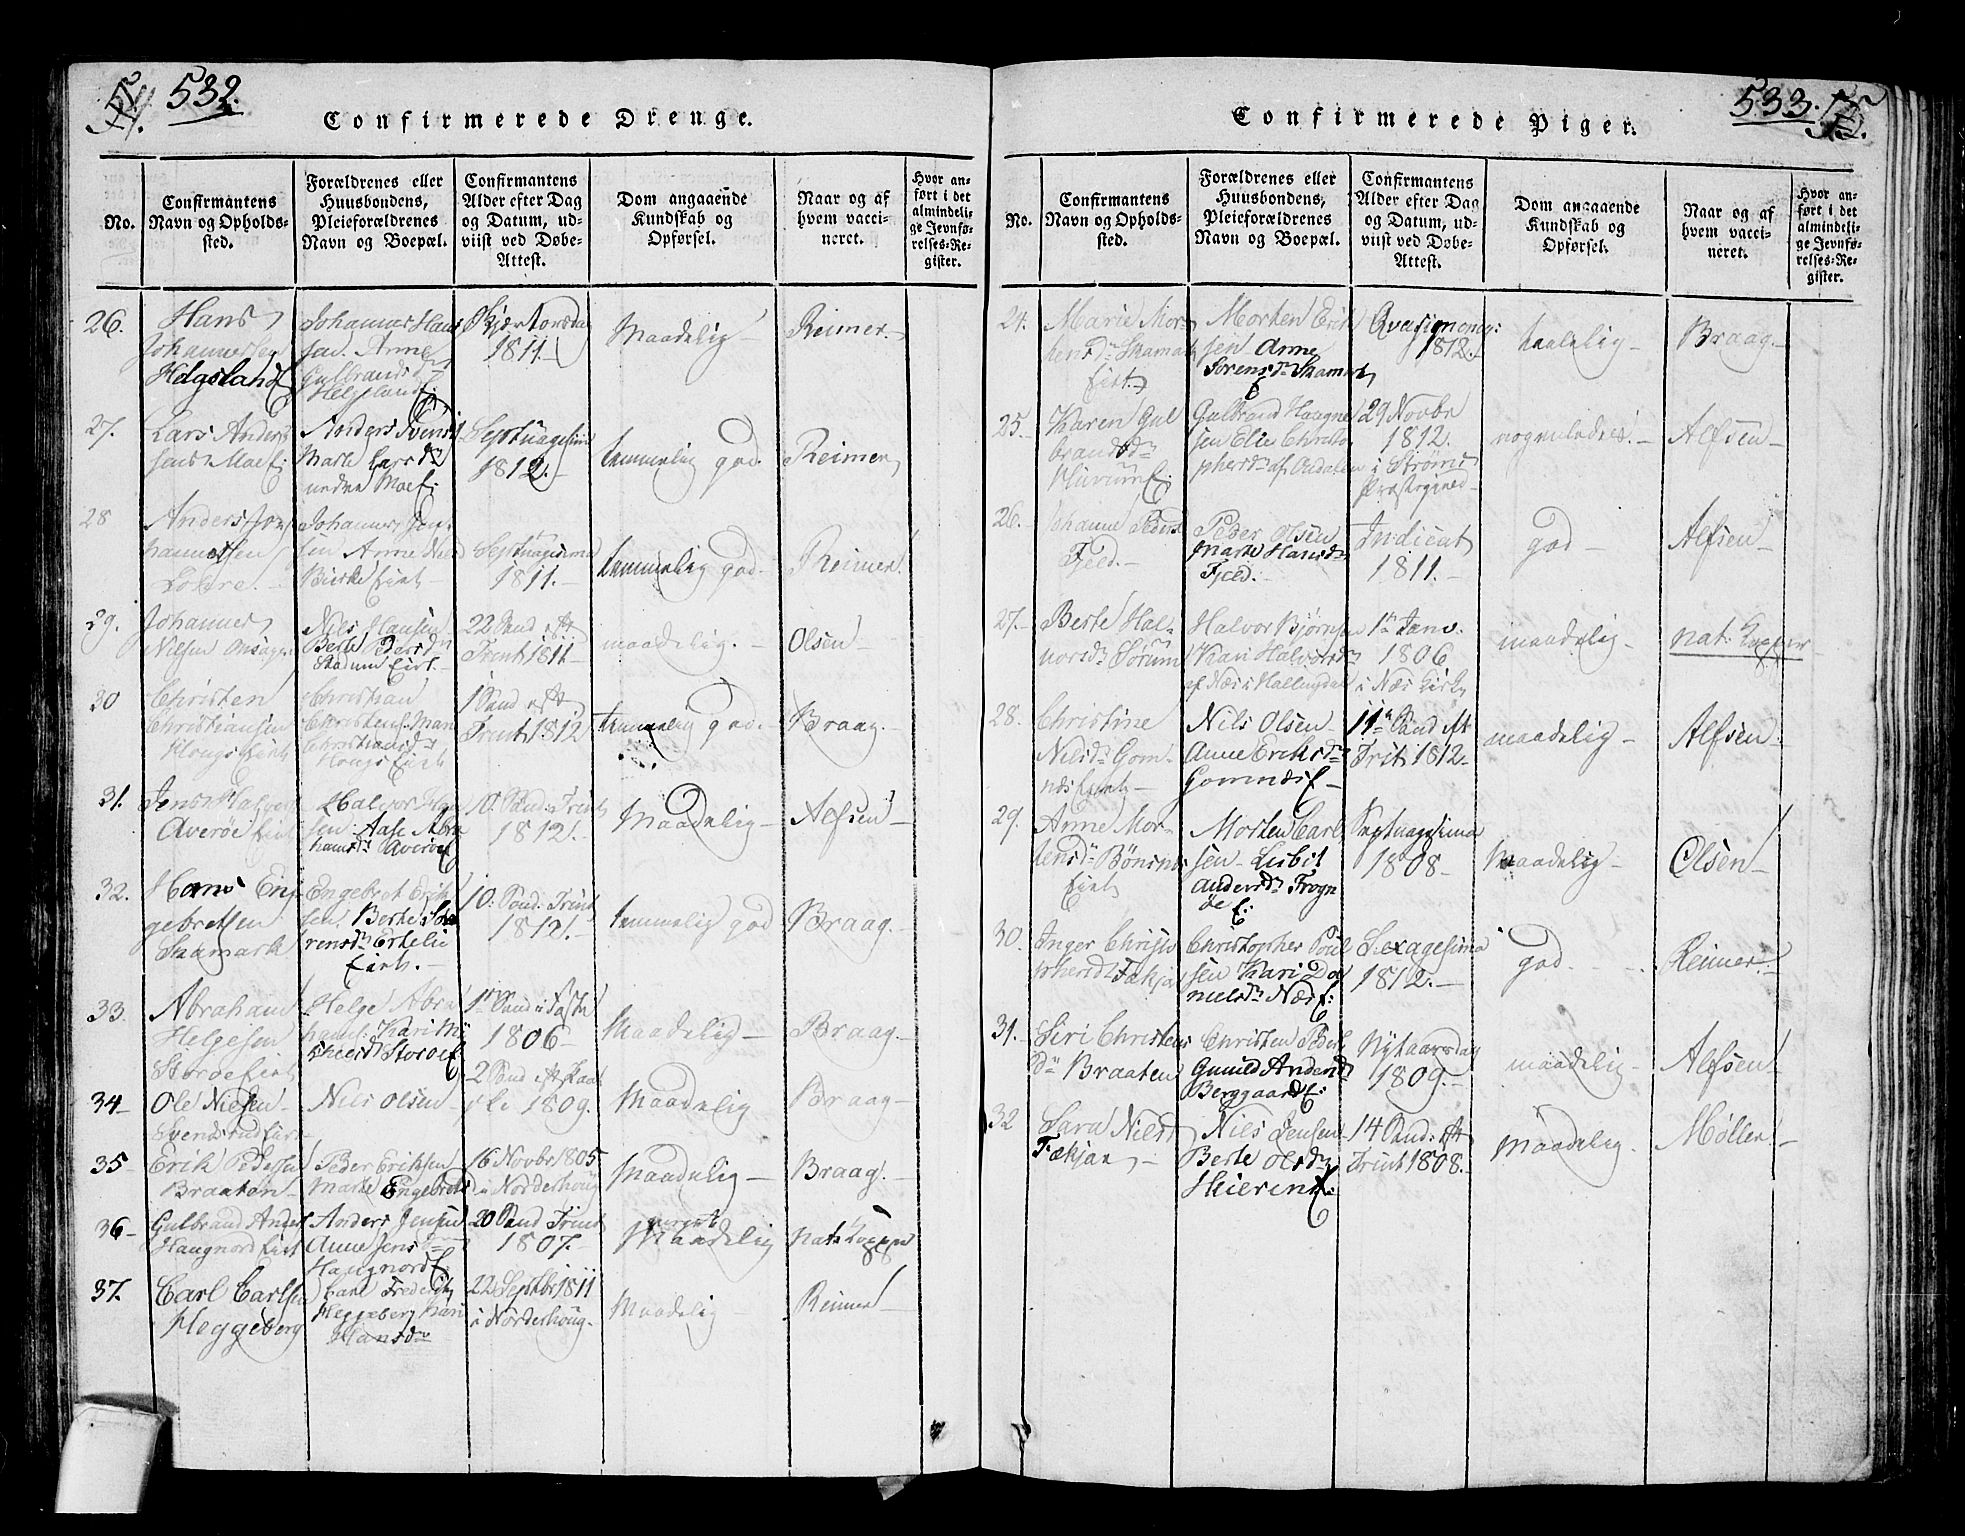 532.
Confirmerede Drenge.
No.
Confirmantens
Navn og Opholds-
sted.
Forældrenes eller
Huusbondens,
Pleieforældrenes
Navn og Boepæl.
Confirmantens
Alder efter Dag
og Datum, ud-
viist ved Døbe-
Attest.
Dom angaaende
Kundskab og
Opførsel.
Naar og af
hvem vacci-
neret.
Hvor an-
ført i det
almindeli-
ge Jevnfø-
relses-Re-
gister.
26.
Hans
Johannesen
Helgeland
Johannes Hans
sen. Anne
Gulbrandsd
Skjærtorsdag
1811.
Maadelig
Reimer.
27.
Lars Anders
sens Moe E.
Anders Svends
Marte Larsdr
nedre Moe E.
Septuagesima
1812.
temmelig god.
Reimer
28
Anders Jo
hannessen
Johannes Jen
sen Anne Niels
Septuagesima
1811.
temmelig god.
Reimer.
29.
Johannes
Nielsen
Niels Hansen
Berte Pedersdr
22 Sønd eft
Trinit 1811
maadelig.
Olsen
30
Christen
Christiansen
Christian
Christens. Mari
Christiansd
1 Sønd eft
Trinit 1812
temmelig god.
Braag.
31.
Jens Halvors
Averøe Eiet
Halvor
sen. Aase Abra
hamsdr Averøe E
10. Sønd. Trinit
1812.
Maadelig
Alfsen
32.
Hans En
gebretsen
Skamark
Engebret Erik
sen. Berte Sø
rensdr Ertelie
Eiet.
10. Sønd. Trinit
1812.
temmelig god
Braag.
33.
Abraham
Helgesen
Storøe Eiet
Helge Abra
hams. Kari
Storøe E
1te Sønd i Faste
1806
Maadelig
Braag.
34
Ole Nielsen
Svendsrud Eiet
Niels Olsen
2 Sønd eft Paa
ske 1809.
Maadelig
Braag
35
Erik Pedersen
Braaten
Peder Eriksen
Marte Engebretsd
16 Novbr 1805
i Norderhoug
Maadelig
Braag.
36
Gulbrand Anders
Haugnord Eiet
Anders Jensen
Anne Jensdr
Haugnord E.
20 Sønd Trinit
1807.
Maadelig
Nat. Kopper
37.
Carl Carlsen
Heggeberg
Carl Frederik
Heggeberg Kari
Hansdr
22 Septbr 1811
i Norderhoug.
Maadelig
Reimer
533.
Confirmerede Piger.
No.
Confirmantens
Navn og Opholds-
sted.
Forældrenes eller
Huusbondens,
Pleieforældrenes
Navn og Boepæl.
Confirmantens
Alder efter Dag
og Datum, ud-
viist ved Døbe-
Attest.
Dom angaaende
Kundskab og
Opførsel.
Naar og af
hvem vacci-
neret.
Hvor an-
ført i det
almindeli-
ge Jevnfø-
relses-Re-
gister.
24.
Marie Mor-
tensdr Skamark
Eiet
Morten Erik
sen Anne
Sørensdr Skamark
E
Qvasimodog:
1812.
taalelig
Braag.
25.
Karen Gul
brandsdr
Gulbrand Haagne
sen Elie Christo
phersdr af Aadalen
29 Novbr
1812.
i Strøms
Præstegield
nogenledes.
Alfsen
26.
Johanne Pedersd
Fjeld.
Peder Olsen
Marte Hansdr
Fjeld.
Indicat
1811.
god
Alfsen
27.
Berte Hal-
vorsdr Sørum
Halvor Bjørnsen
Kari Halvorsdr
af Næs i Hallingdal
1te Janv.
1806
i Næs Kirke
maadelig
nat: Kopper
28.
Christine
Nielsdr Gom-
næs Eiet
Niels Olsen
Anne Eriksdr
Gomnæs E
11te Sønd eft
Trit: 1812
maadelig
Alfsen
29.
Anne Mor-
tensdr Bønsnæs
Eiet
Morten Carl
sen Lisbet
Andersdr Frogn
øe E.
Septuagesima
1808
Maadelig
Olsen
30.
Inger Christo
phersd Fækjær
Christopher Poul
sen Kari Da
nielsdr Næs E.
Sexagesima
1812.
god.
Reimer.
31.
Siri Christens
dr Braaten
Christen Peders
Gunild Andersdr
Berggaard E.
Nytaarsdag
1809.
maadelig
Alfsen
32
Sara Nielsd
Fækjær
Niels Jensen
Berte Olsdr
Heieren E.
14 Sønd. eft
Trinit 1808.
Maadelig.
Møller